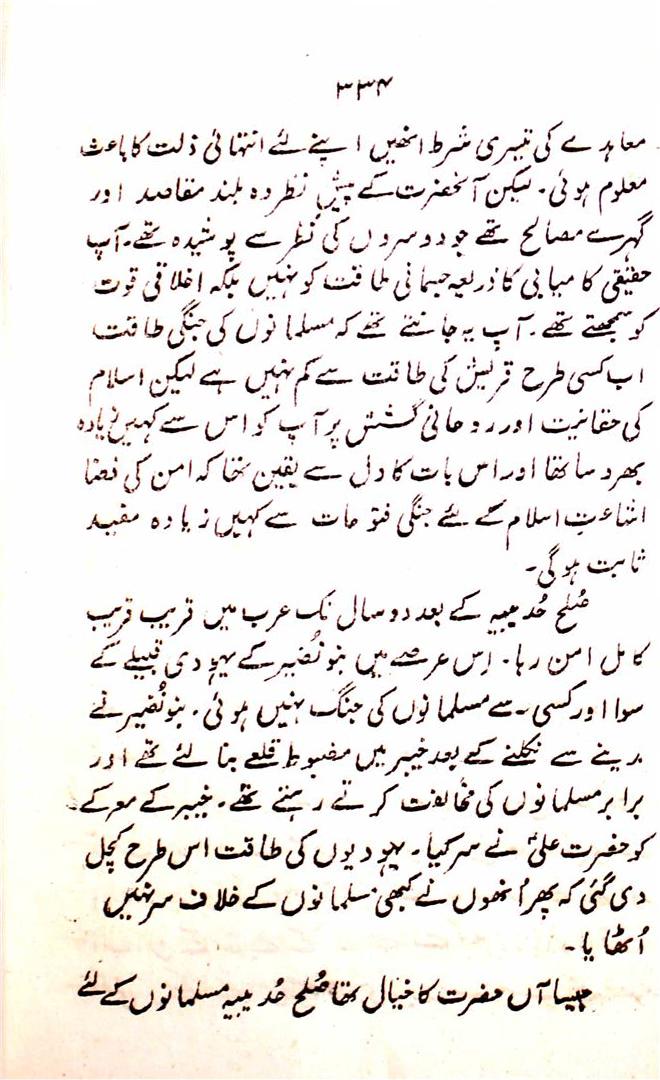 ۳۳۴
معاہدے کی تیسری شرط انھیں اپنے لئے انتہائی ذلت کا باعث
معلوم ہوئی۔ لیکن آنحضرت کے پیشِ نظر وہ بلند مقاصد اور
گہرے مصالح تھے جو دوسروں کی نظر سے پوشیدہ تھے۔ آپ
حقیقی کامیابی کا ذریعہ جسمانی طاقت کو نہیں بلکہ اخلاقی قوت
کو سمجھتے تھے۔ آپ یہ جانتے تھے کہ مسلمانوں کی جنگی طاقت
اب کسی طرح قریش کی طاقت سے کم نہیں ہے لیکن اسلام
کی حقانیت اور روحانی کشش پر آپ کو اس سے کہیں زیادہ
بھروسا تھا اور اس بات کا دل سے یقین تھا کہ امن کی فضا
اشاعتِ اسلام کے لئے جنگی فتوحات سے کہیں زیادہ مفید
ثابت ہوگی۔
صُلح حُدیبیہ کے بعد دو سال تک عرب میں قریب قریب
کامل امن رہا۔ اِس عرصے میں بنو نُضیر کے یہودی قبیلے کے
سوا اور کسی سے مسلمانوں کی جنگ نہیں ہوئی۔ بنو نُضیر نے
مدینے سے نکلنے کے بعد خیبر میں مضبوط قلعے بنا لئے تھے اور
برابر مسلمانوں کی مخالفت کرتے رہتے تھے۔ خیبر کے معرکے
کو حضرت علیؑ نے سر کیا۔ یہودیوں کی طاقت اس طرح کچل
دی گئی کہ پھر اُنھوں نے کبھی مسلمانوں کے خلاف سر نہیں
اُٹھایا۔
جیسا آں حضرت کا خیال تھا صُلح حُدیبیہ مسلمانوں کے لئے